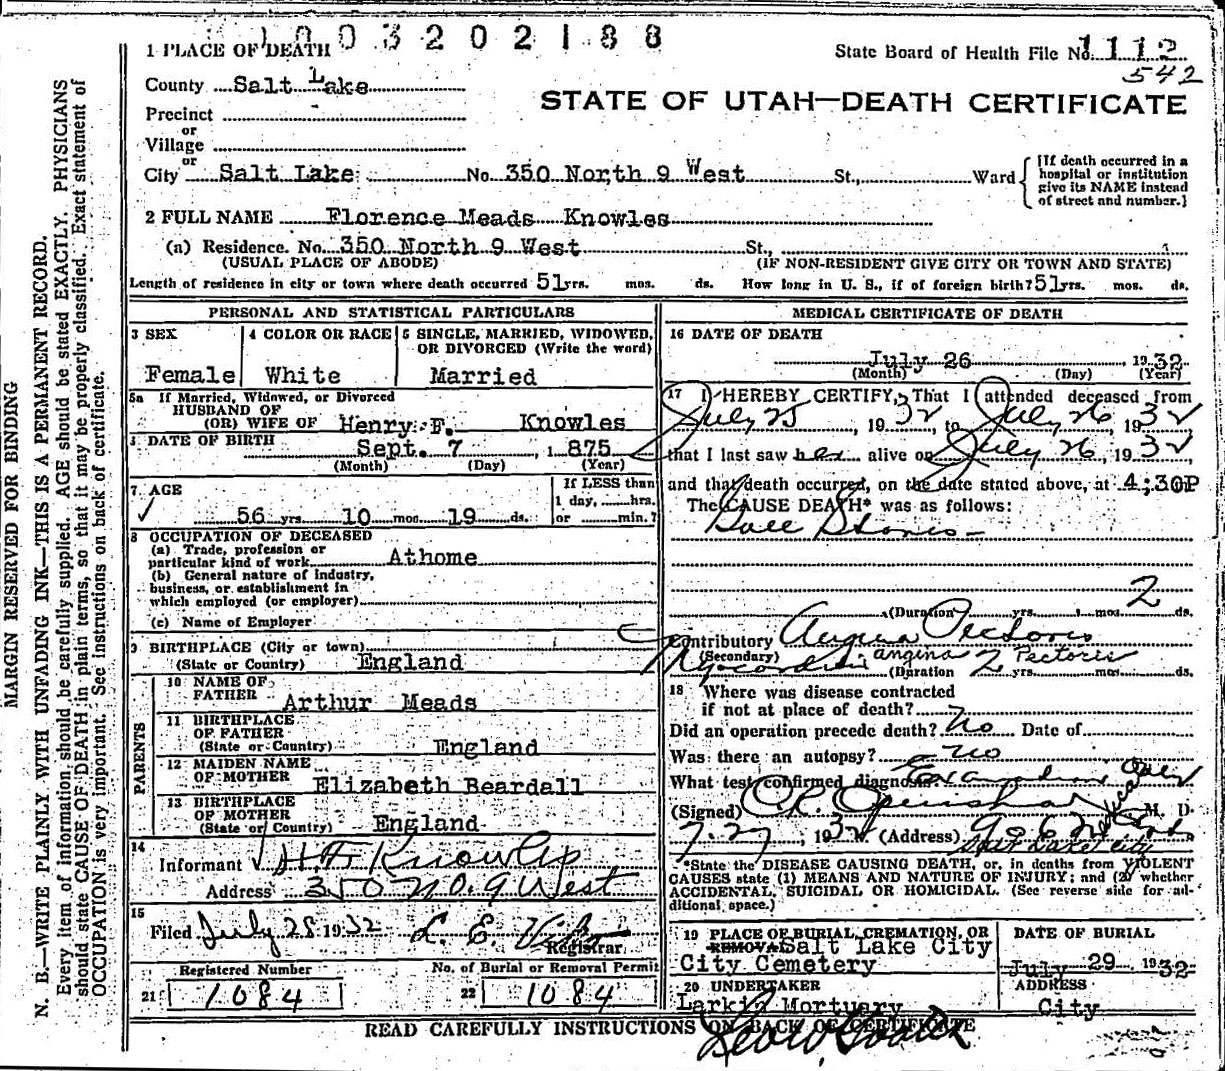 1003202188
1 PLACE OF DEATH
State Board of Health File No. 1112
542
County Salt Lake
STATE OF UTAH—DEATH CERTIFICATE
Precinct
or
Village
or
City Salt Lake No. 350 North 9 West St., Ward {[If death occurred in a hospital or institution give its NAME instead of street and number.]
2 FULL NAME Florence Meads Knowles
(a) Residence. No. 350 North 9 West St.,
(USUAL PLACE OF ABODE) (IF NON-RESIDENT GIVE CITY OR TOWN AND STATE)
Length of residence in city or town where death occurred 51 yrs. mos. ds. How long in U. S., if of foreign birth? 51 yrs. mos. ds.
PERSONAL AND STATISTICAL PARTICULARS
3 SEX
Female
4 COLOR OR RACE
White
5 SINGLE, MARRIED, WIDOWED,
OR DIVORCED (Write the word)
Married
5a If Married, Widowed, or Divorced
HUSBAND OF
(OR) WIFE OF Henry F. Knowles
DATE OF BIRTH
Sept. 7, 1875
(Month) (Day) (Year)
7 AGE
56 yrs. 10 mos. 19 ds.
If LESS than
1 day, hrs.
or min.?
8 OCCUPATION OF DECEASED
(a) Trade, profession or
particular kind of work Athome
(b) General nature of industry,
business, or establishment in
which employed (or employer)
(c) Name of Employer
9 BIRTHPLACE (City or town)
(State or Country) England
PARENTS
10 NAME OF
FATHER Arthur Meads
11 BIRTHPLACE
OF FATHER
(State or Country) England
12 MAIDEN NAME
OF MOTHER Elizabeth Beardall
13 BIRTHPLACE
OF MOTHER
(State or Country) England
14
Informant H F Knowles
Address 350 No. 9 West
15
Filed July 28 1932 L. E.
Registrar
Registered Number
21 1084
No. of Burial or Removal Permit
22 1084
MEDICAL CERTIFICATE OF DEATH
16 DATE OF DEATH
July 26 1932
(Month) (Day) (Year)
17 I HEREBY CERTIFY, That I attended deceased from
July 25, 1932, to July 26, 1932
that I last saw her alive on July 26, 1932,
and that death occurred, on the date stated above, at 4:30P
The CAUSE DEATH* was as follows:
Gall Stones
(Duration yrs. mos. 2 ds.
Contributory Angina Pectoris
(Secondary) Myocarditis angina Pectoris
(Duration 2 yrs. mos. ds.
18 Where was disease contracted
if not at place of death?
Did an operation precede death? No Date of
Was there an autopsy? no
What test confirmed diagnosis? Examination Only
(Signed) C. R. Openshaw M. D.
7-27, 1932 (Address)
Salt Lake City
*State the DISEASE CAUSING DEATH, or, in deaths from VIOLENT
CAUSES state (1) MEANS AND NATURE OF INJURY; and (2) whether
ACCIDENTAL, SUICIDAL OR HOMICIDAL. (See reverse side for ad-
ditional space.)
19 PLACE OF BURIAL, CREMATION, OR
REMOVAL Salt Lake City
City Cemetery
DATE OF BURIAL
July 29 1932
20 UNDERTAKER
Larkin Mortuary
ADDRESS
City
READ CAREFULLY INSTRUCTIONS ON BACK OF CERTIFICATE
MARGIN RESERVED FOR BINDING
N. B.—WRITE PLAINLY WITH UNFADING INK—THIS IS A PERMANENT RECORD.
Every item of information should be carefully supplied. AGE should be stated EXACTLY. PHYSICIANS
should state CAUSE OF DEATH in plain terms, so that it may be properly classified. Exact statement of
OCCUPATION is very important. See instructions on back of certificate.